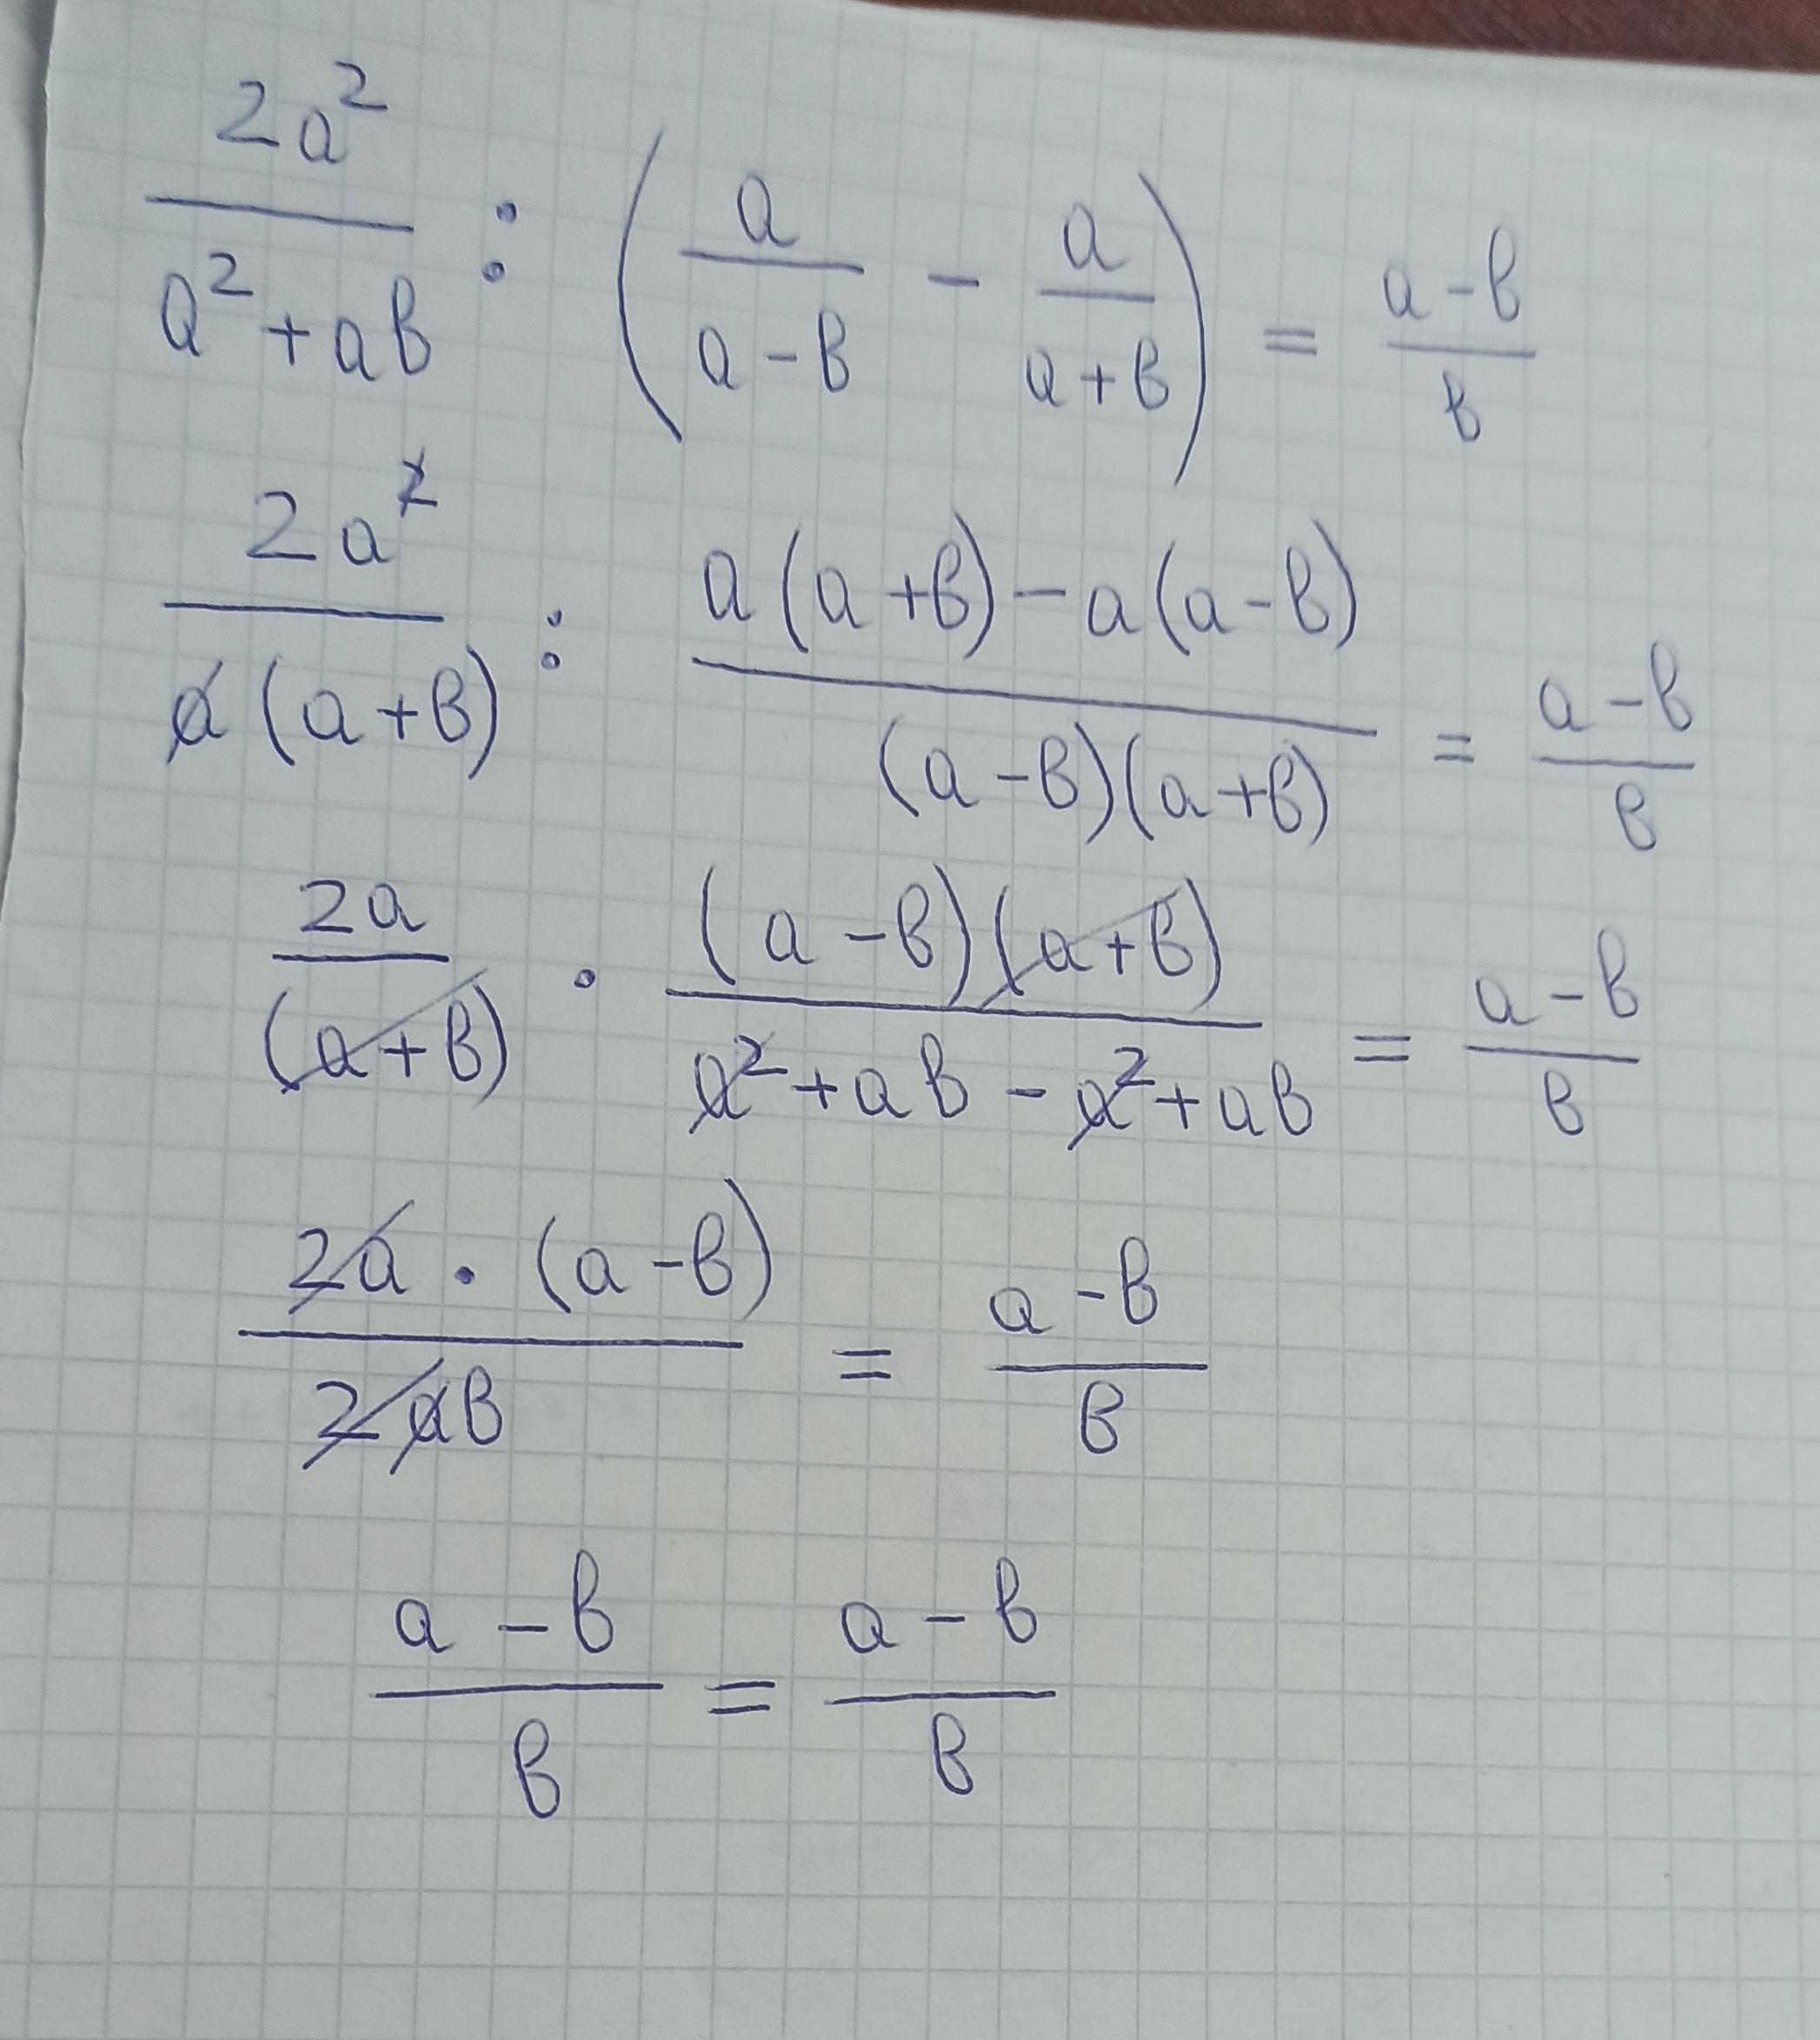 2a²/(a²+aв) : (a/(a-в) - a/(a+в)) = (a-в)/в
2a²/(a(a+в)) : (a(a+в)-a(a-в))/((a-в)(a+в)) = (a-в)/в
2a/(a+в) · ((a-в)(a+в))/(a²+aв-a²+aв) = (a-в)/в
(2a·(a-в))/(2aв) = (a-в)/в
(a-в)/в = (a-в)/в